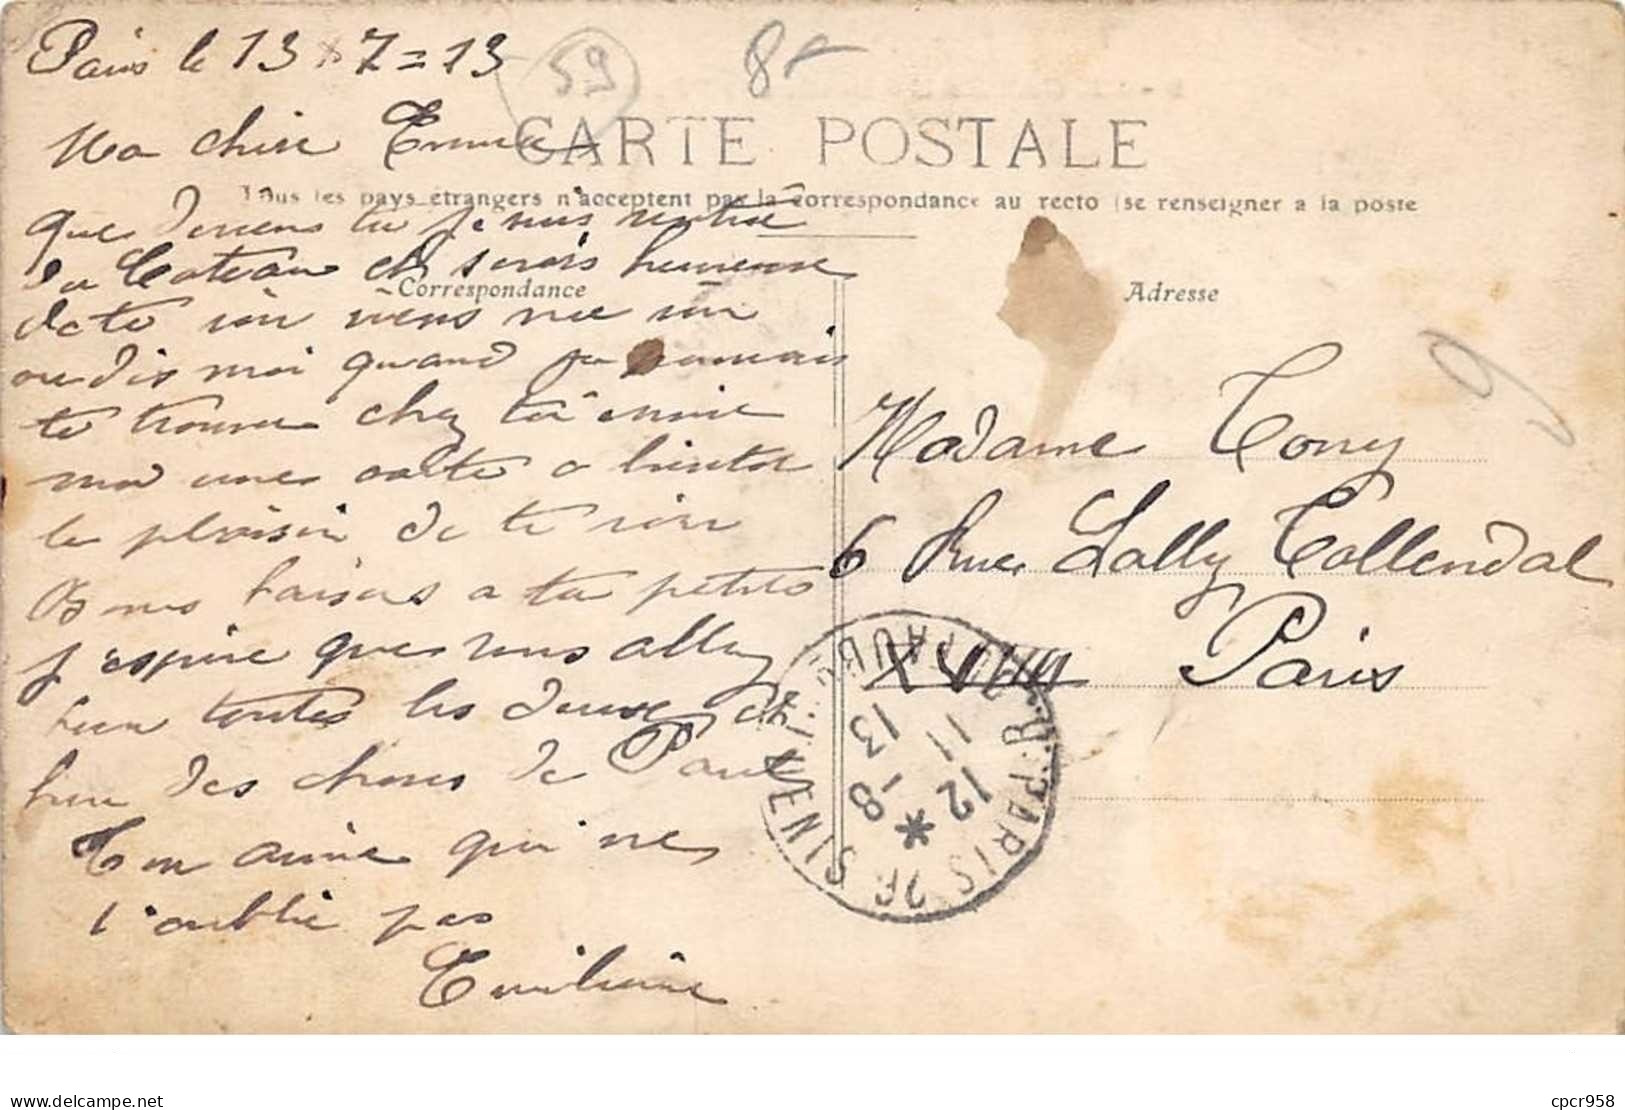 Paris le 13 x 7 = 13
59
8f
Ma chere Emma
CARTE POSTALE
Tous les pays étrangers n'acceptent pas la correspondance au recto (se renseigner a la poste
que deviens tu je suis rentré
du Cateau et serais heureuse
Correspondance
Adresse
de te voir viens me voir
ou dis moi quand je pourrais
te trouver chez toi envoie
moi une carte a bientot
le plaisir de te voir
Bons baisers a ta petite
j'espère que vous allez
bien toutes les deux et
bien des choses de
Ton amie qui ne
t'oublie pas
Emilienne
Madame Tony
6 Rue Lally Tollendal
Paris
XVIII
9
PARIS 26
R. DU FAUBG ST DENIS
12 11
8 - 13
cpcr958